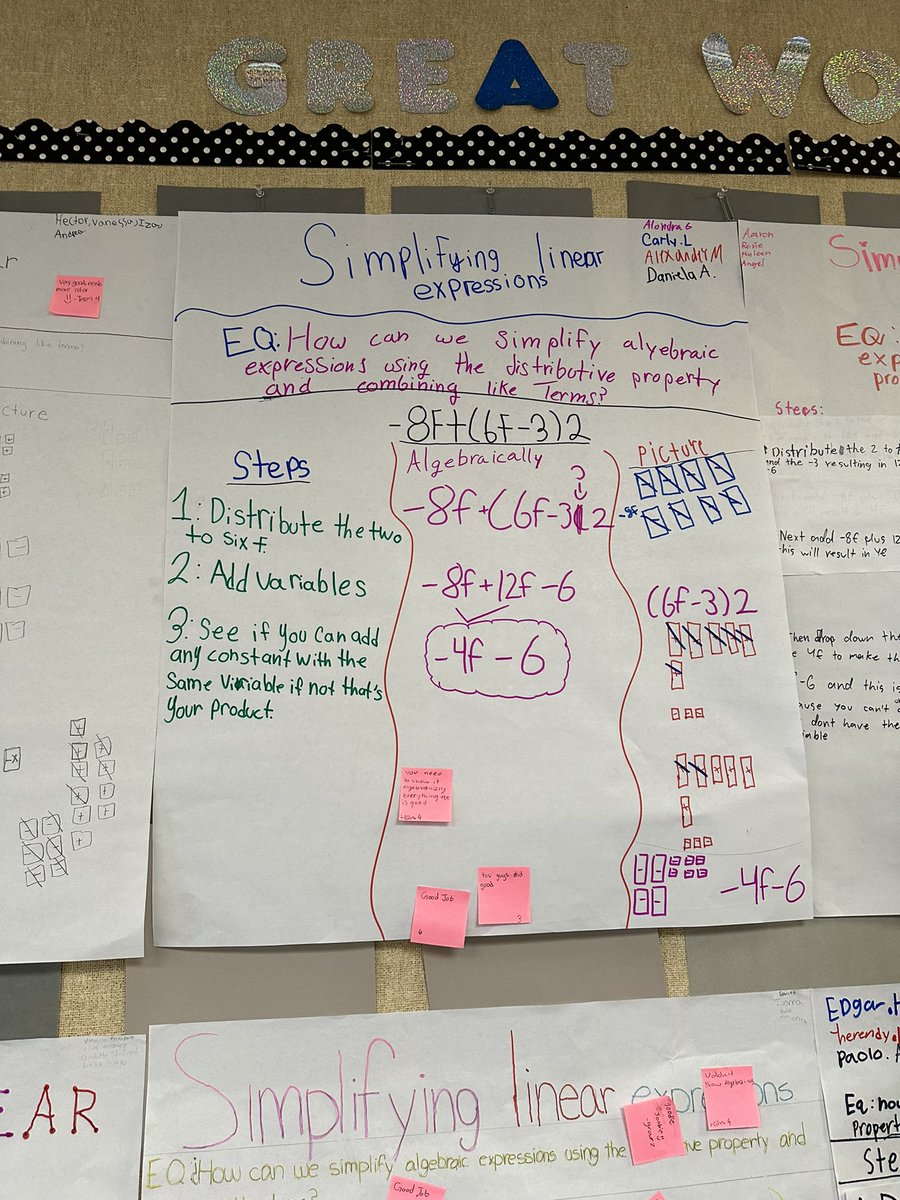 GREAT WO
Hector, Vanessa, Izac
Andrea
Very good needs
more color
cture
Simplifying linear
expressions
Alondra G
Carly.L
Alexandir M
Daniela A.
EQ: How can we simplify alyebraic
expressions using the distributive property
and combining like Terms?
-8f+(6f-3)2
Steps
1: Distribute the two
to six f.
2: Add variables
3: See if you can add
any constant with the
Same Variable if not that's
Your Product.
Algebraically
-8f+(6f-3)2
-8f+12f-6
-4f-6
You need
to show it
algebraically
everything else
is good
team 4
Good Job
6
You guys did
good
3
Picture
-8f
(6f-3)2
-4f-6
Aaron
Rosie
Angel
Sim
EQ:
exp
pro
Steps:
Distribute the 2 to
and the -3 resulting in 12
-6
Next add -8f plus 12
this will result in 4f
Then drop down the
4f to make th
-6 and this is
ause you can't
dont have the
iable
-x
EAR
Simplifying linear expressions
EQ: How can we simplify algebraic expressions using the ive property and
Good Job
Edgar.H
herendy.
Paolo.
Eq: how
Property
Ste